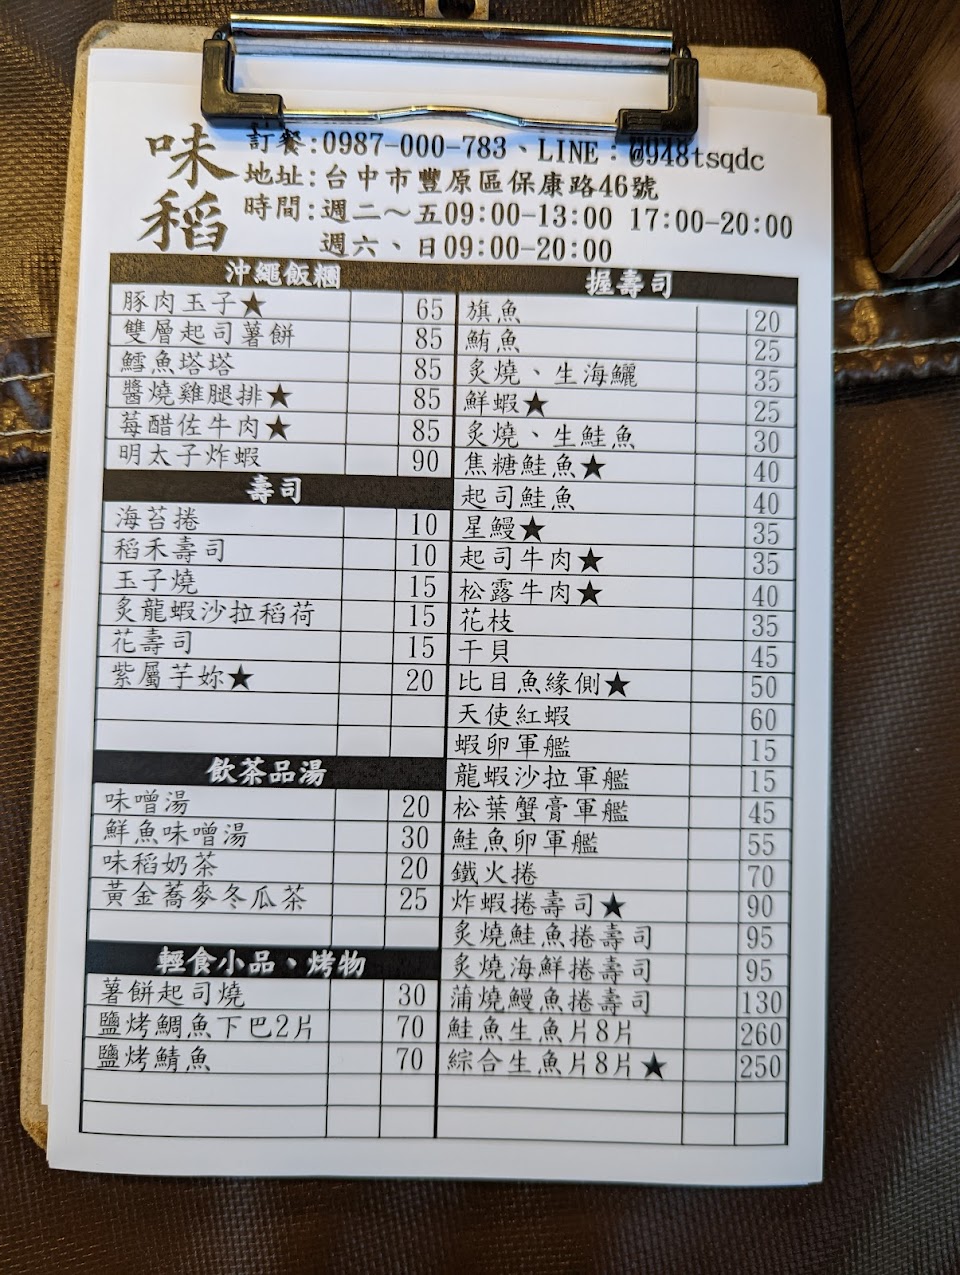 味稻
訂餐:0987-000-783、LINE：@948tsqdc
地址:台中市豐原區保康路46號
時間:週二～五09:00-13:00 17:00-20:00
週六、日09:00-20:00
沖繩飯糰
豚肉玉子★ 65
雙層起司薯餅 85
鱈魚塔塔 85
醬燒雞腿排★ 85
莓醋佐牛肉★ 85
明太子炸蝦 90
壽司
海苔捲 10
稻禾壽司 10
玉子燒 15
炙龍蝦沙拉稻荷 15
花壽司 15
紫屬芋妳★ 20
飲茶品湯
味噌湯 20
鮮魚味噌湯 30
味稻奶茶 20
黃金蕎麥冬瓜茶 25
輕食小品、烤物
薯餅起司燒 30
鹽烤鯛魚下巴2片 70
鹽烤鯖魚 70
握壽司
旗魚 20
鮪魚 25
炙燒、生海鱺 35
鮮蝦★ 25
炙燒、生鮭魚 30
焦糖鮭魚★ 40
起司鮭魚 40
星鰻★ 35
起司牛肉★ 35
松露牛肉★ 40
花枝 35
干貝 45
比目魚緣側★ 50
天使紅蝦 60
蝦卵軍艦 15
龍蝦沙拉軍艦 15
松葉蟹膏軍艦 45
鮭魚卵軍艦 55
鐵火捲 70
炸蝦捲壽司★ 90
炙燒鮭魚捲壽司 95
炙燒海鮮捲壽司 95
蒲燒鰻魚捲壽司 130
鮭魚生魚片8片 260
綜合生魚片8片★ 250